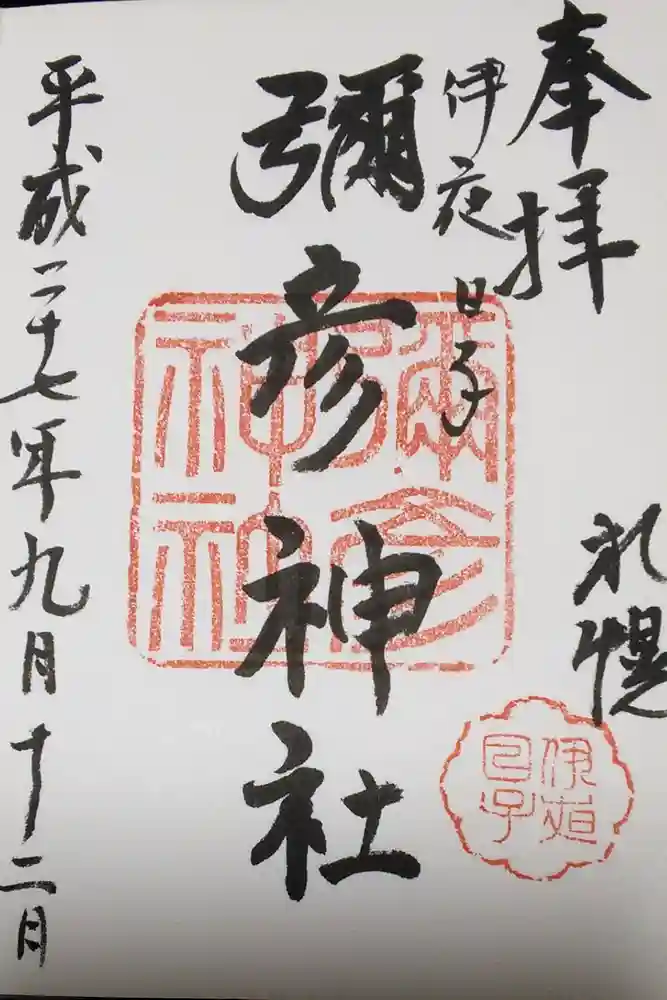 奉拝
札幌
伊夜日子
彌彦神社
平成二十七年九月十二月
彌彦
神社